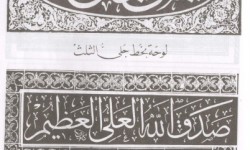 لوحة بخط جلي الثلث
صدق الله العلي العظيم